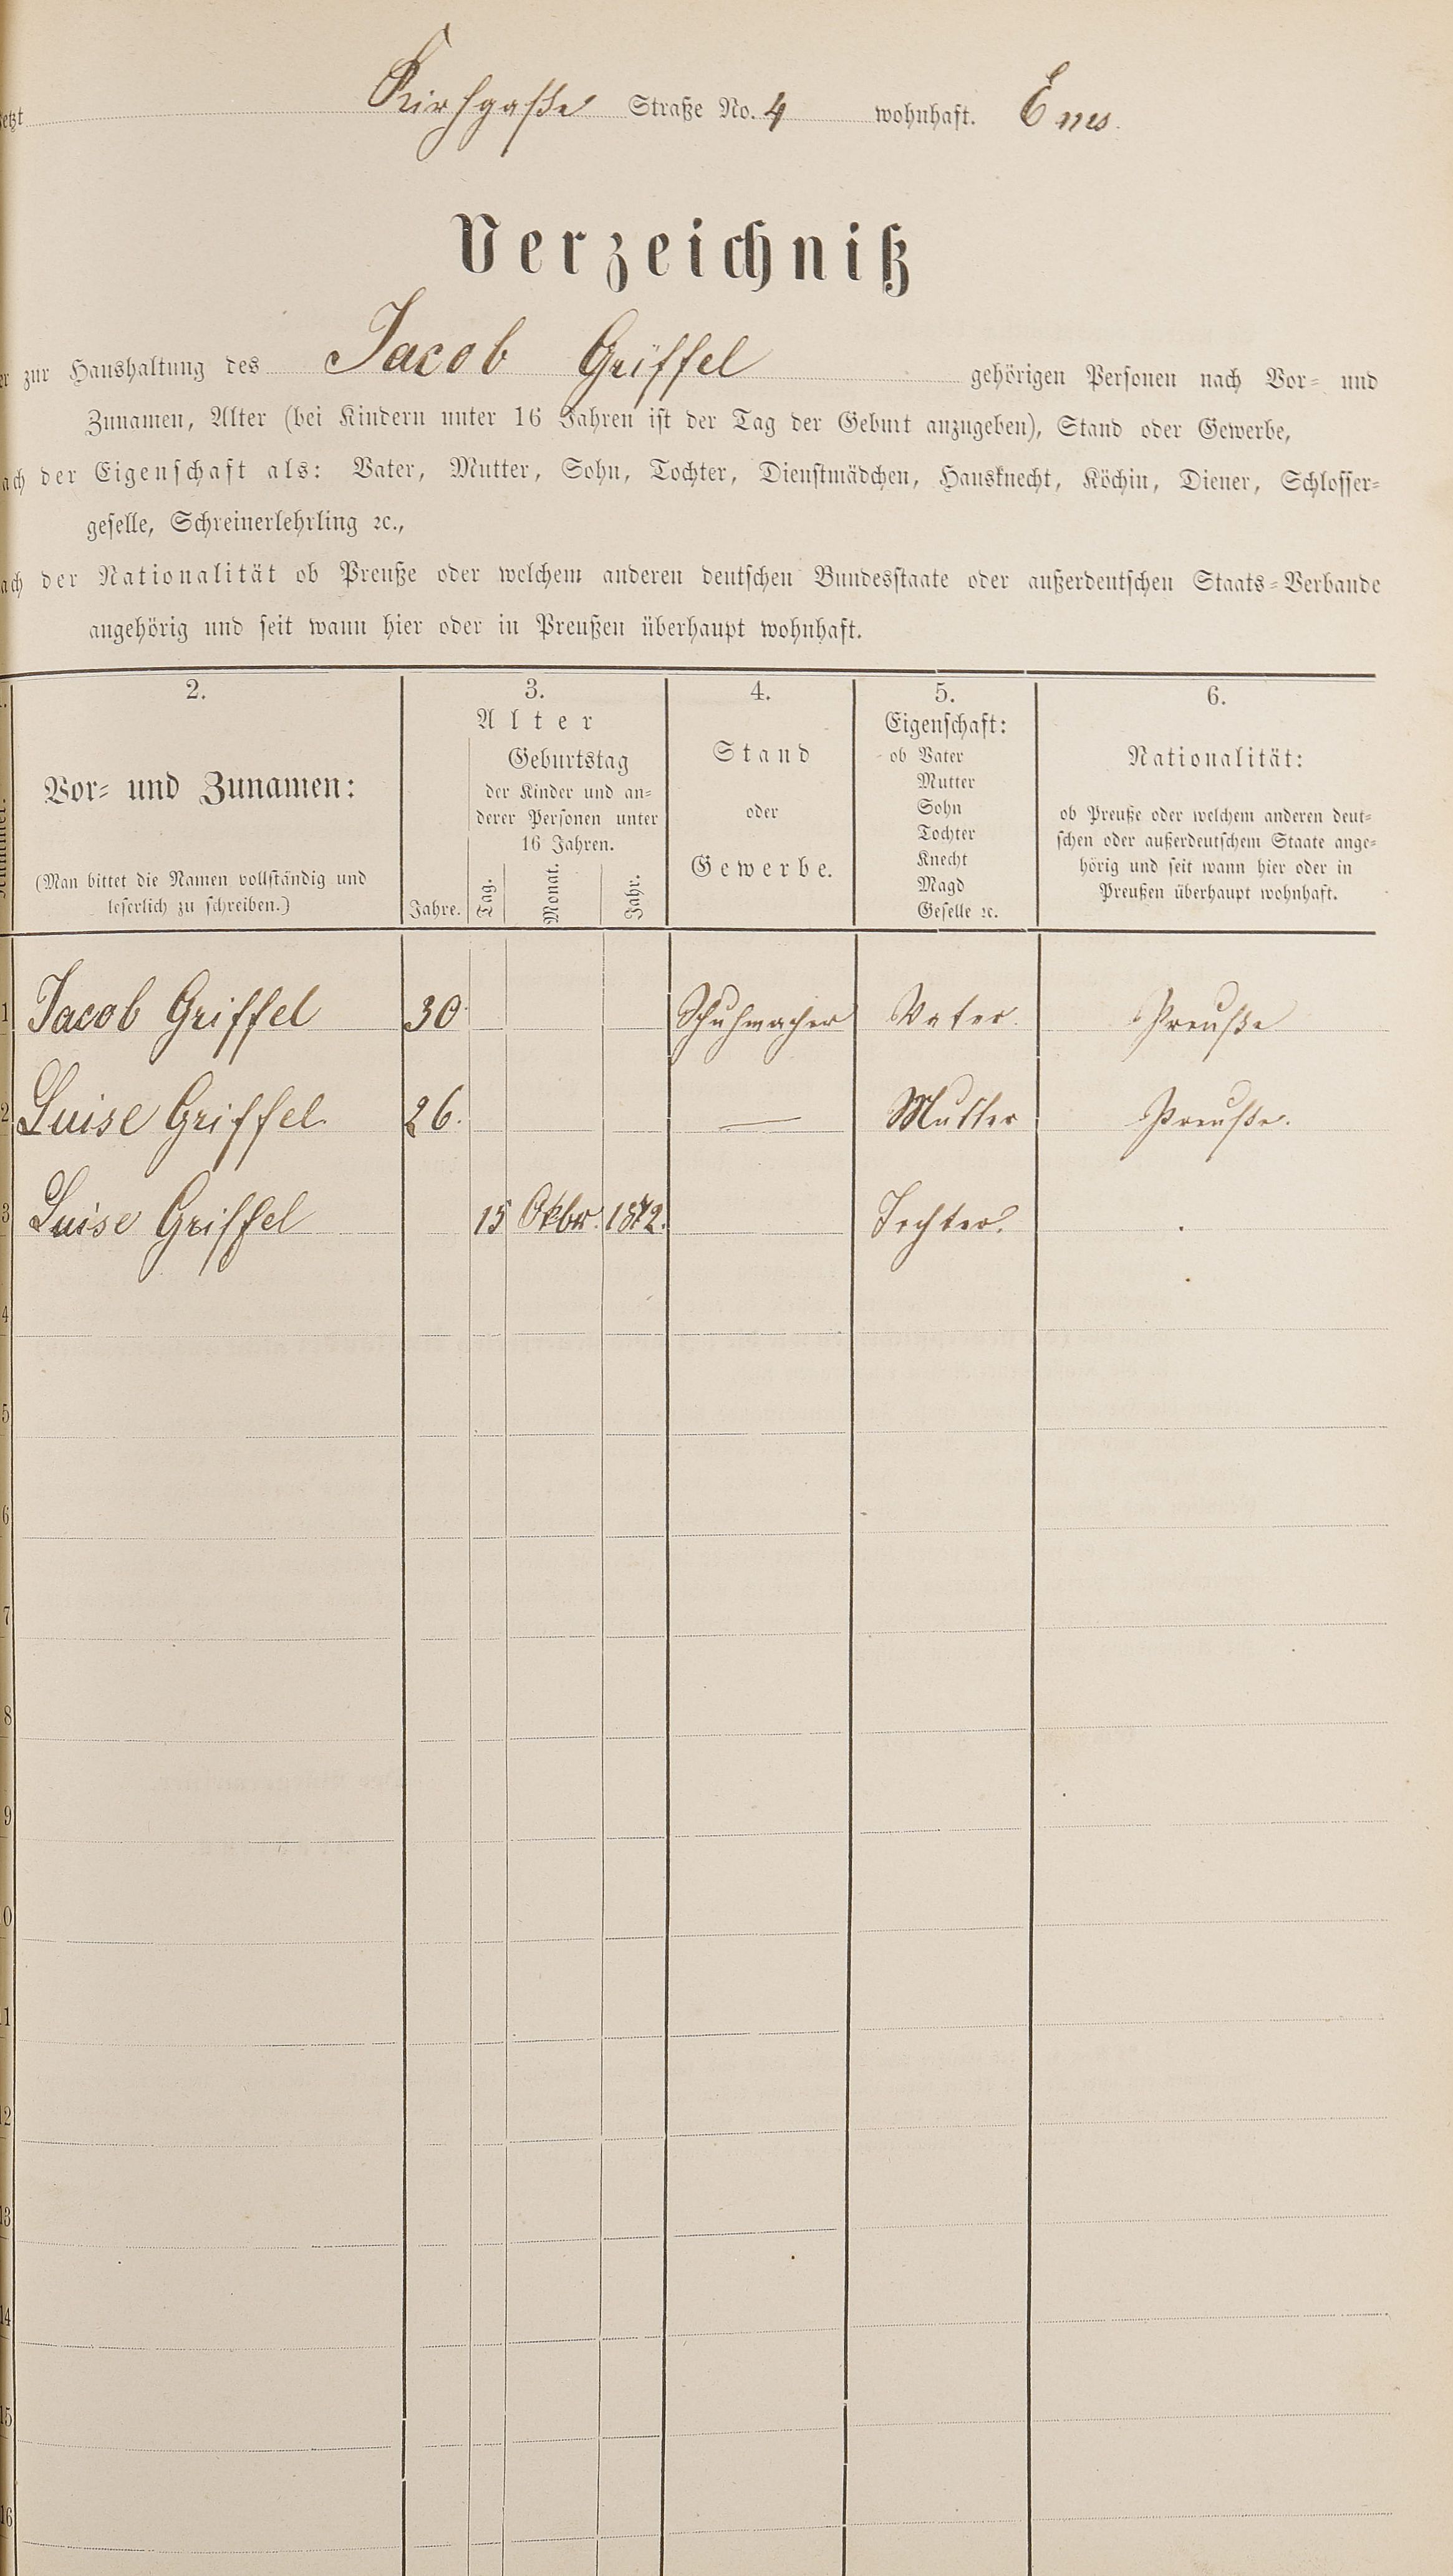 jetzt Kirchgaße Straße No. 4 wohnhaft. Ems.
Verzeichniß
er zur Haushaltung des Jacob Griffel gehörigen Personen nach Vor- und
Zunamen, Alter (bei Kindern unter 16 Jahren ist der Tag der Geburt anzugeben), Stand oder Gewerbe,
ach der Eigenschaft als: Vater, Mutter, Sohn, Tochter, Dienstmädchen, Hausknecht, Köchin, Diener, Schlosser-
geselle, Schreinerlehrling ꝛc.,
ach der Nationalität ob Preuße oder welchem anderen deutschen Bundesstaate oder außerdeutschen Staats-Verbande
angehörig und seit wann hier oder in Preußen überhaupt wohnhaft.
2.
Vor- und Zunamen:
(Man bittet die Namen vollständig und
leserlich zu schreiben.)
3.
Alter
Jahre.
Geburtstag
der Kinder und an-
derer Personen unter
16 Jahren.
Tag.
Monat.
Jahr.
4.
Stand
oder
Gewerbe.
5.
Eigenschaft:
ob Vater
Mutter
Sohn
Tochter
Knecht
Magd
Geselle ꝛc.
6.
Nationalität:
ob Preuße oder welchem anderen deut-
schen oder außerdeutschem Staate ange-
hörig und seit wann hier oder in
Preußen überhaupt wohnhaft.
1 Jacob Griffel 30. Schuhmacher Vater. Preuße
2 Luise Griffel. 26. — Mutter Preuße.
3 Luise Griffel 15 Okbr. 1872. Tochter.
4
5
6
7
8
9
0
1
12
13
14
15
16